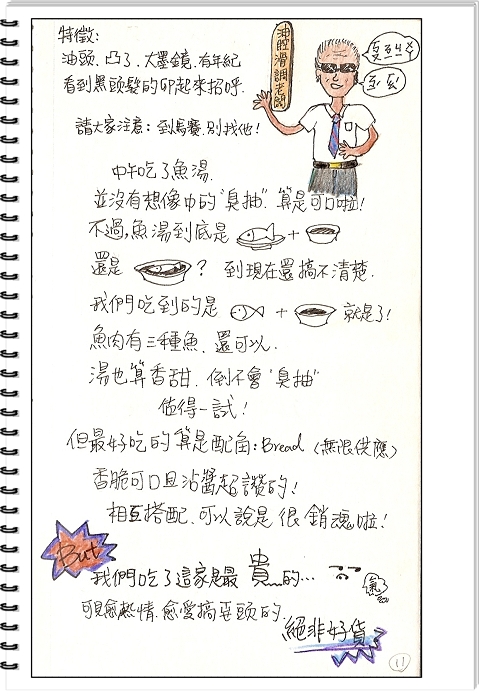 特徵:
油頭、凸了、大墨鏡、有年紀
看到黑頭髮的卯起來招呼.
油腔滑調老闆
請大家注意: 到馬賽, 別找他!
中午吃了魚湯.
並沒有想像中的"臭抽" 算是可口啦!
不過, 魚湯到底是 +
還是 ? 到現在還搞不清楚.
我們吃到的是 + 就是了!
魚肉有三種魚、還可以.
湯也算香甜. 倒不會"臭抽"
值得一試!
但最好吃的算是配角: Bread (無限供應)
香脆可口且沾醬超讚的!
相互搭配、可以說是很銷魂啦!
But
我們吃了這家是最貴的...
氣
可見愈熱情、愈愛搞噱頭的、
絕非好貨。
11